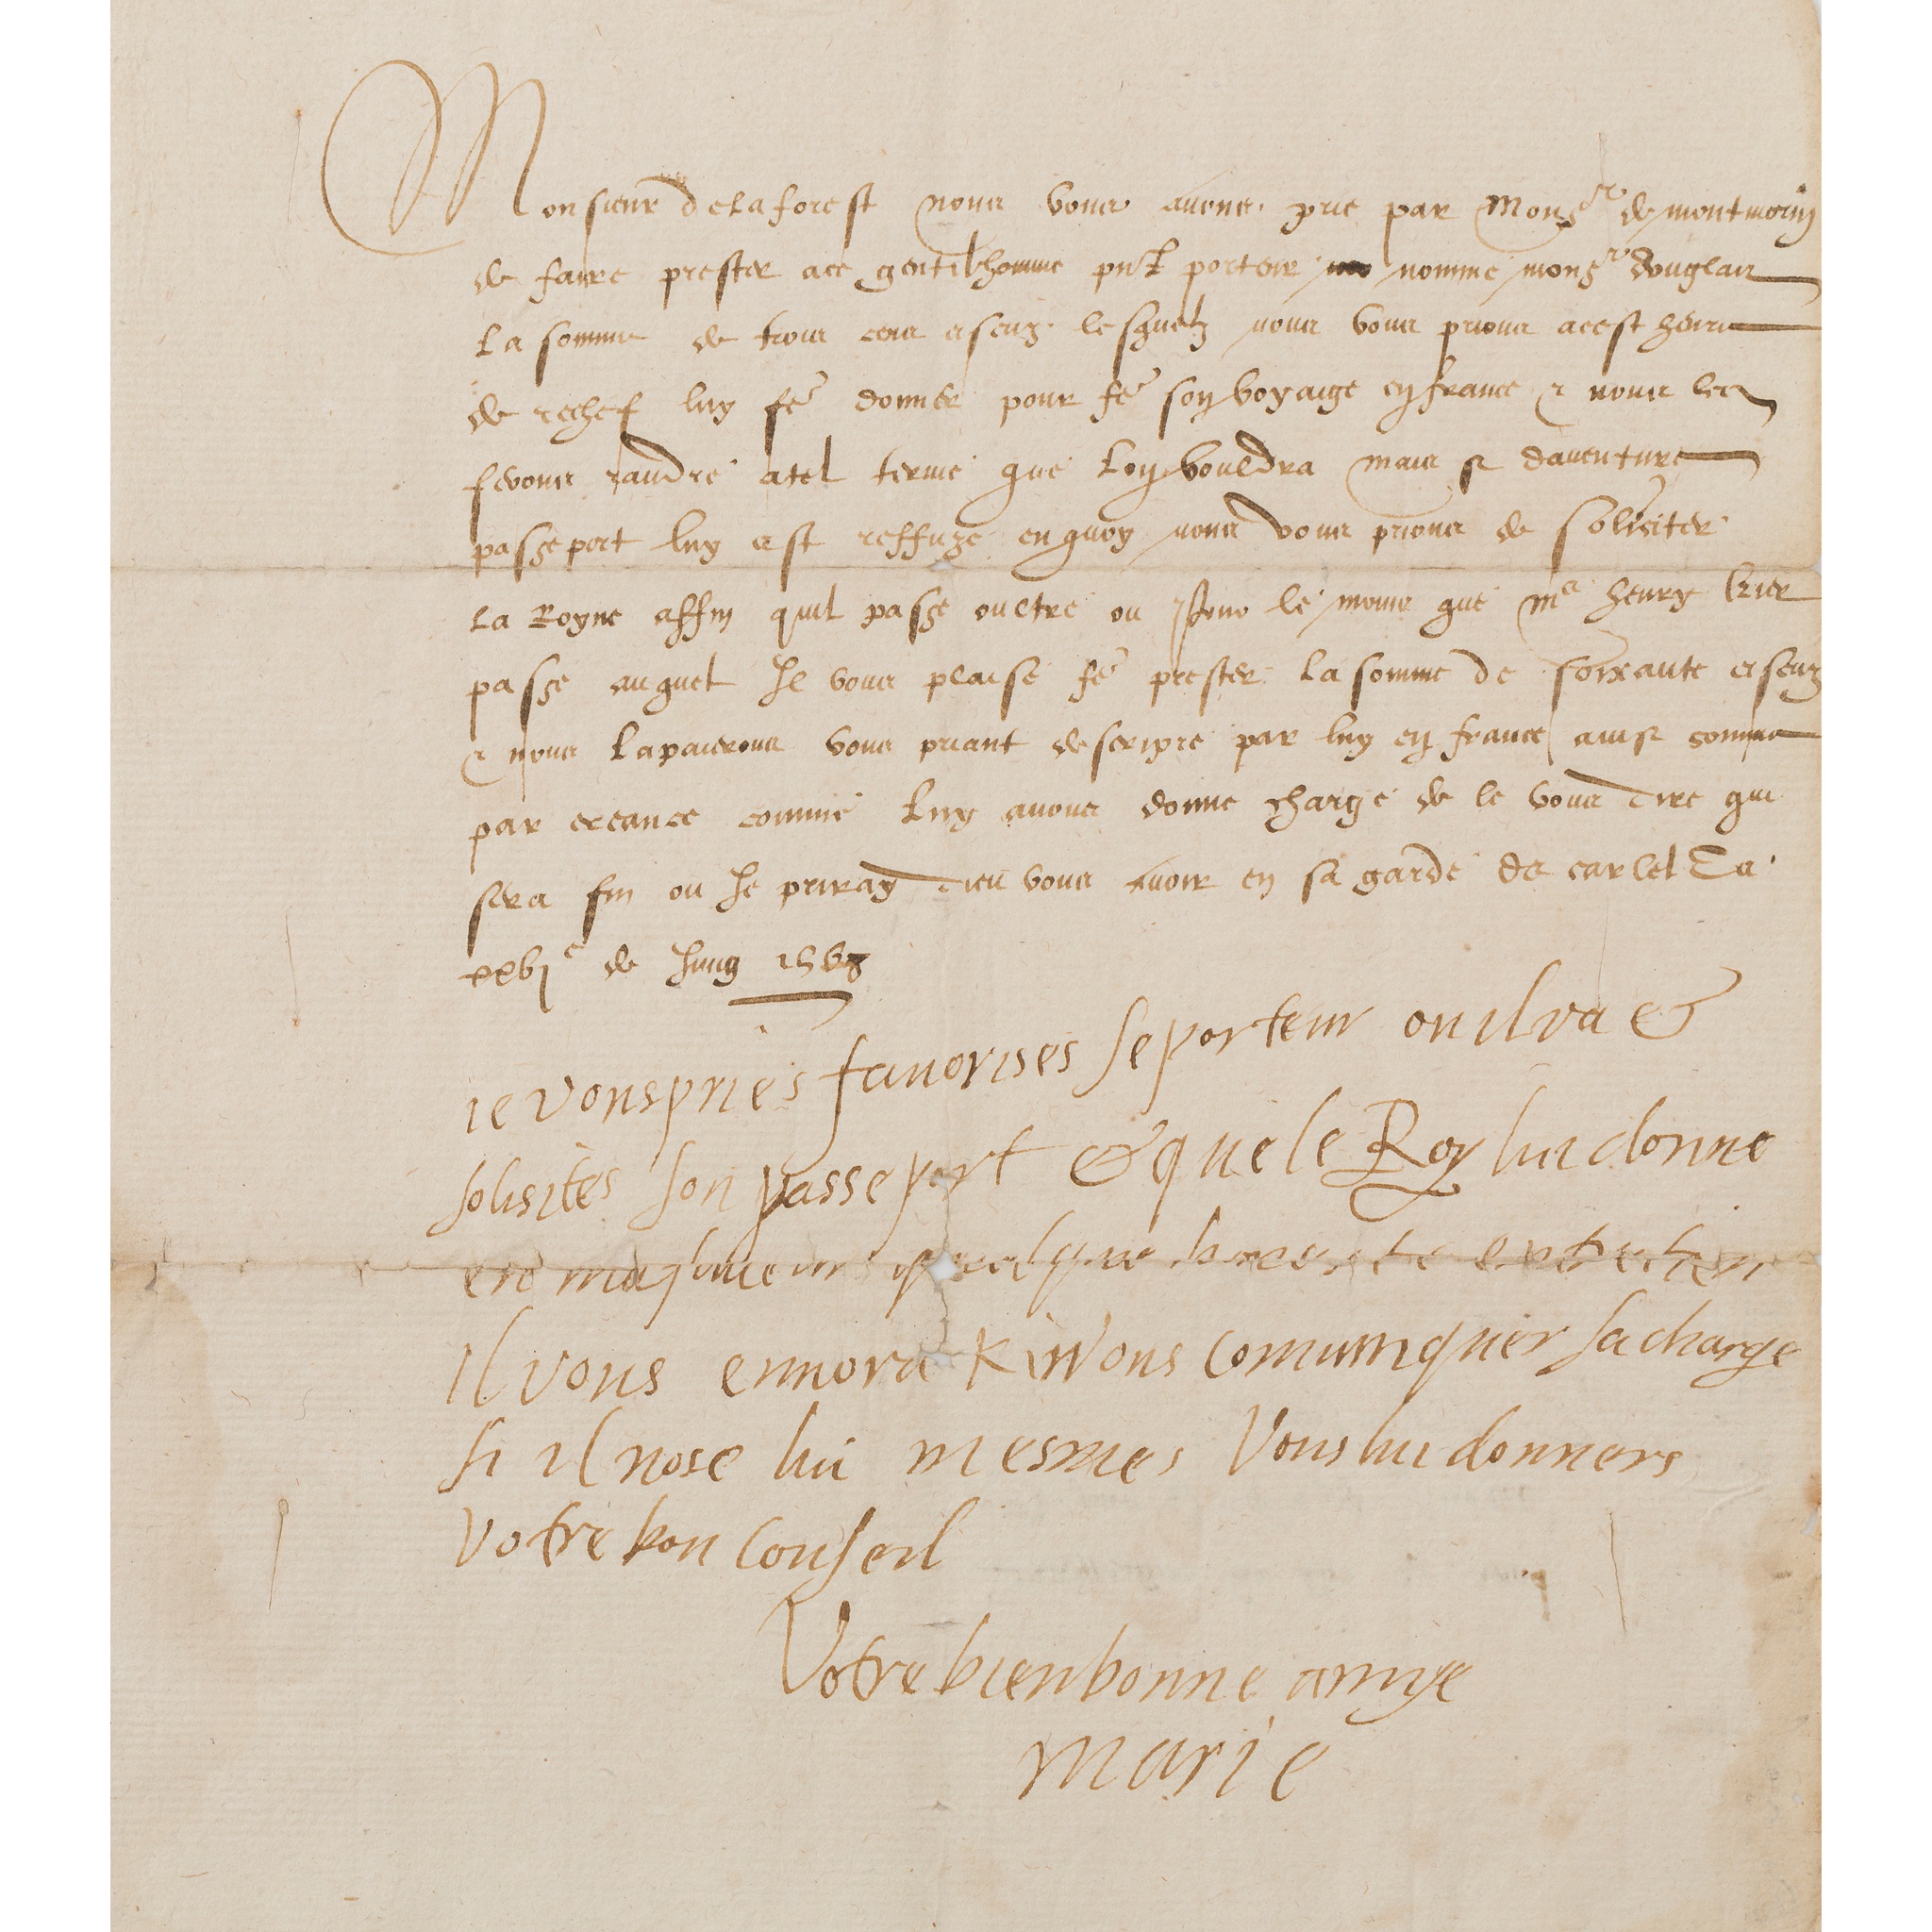 Monsieur delaforest nous vous avons prie par Monsr de montmorin
de faire prester a ce gentilhomme pnt porteur nomme monsr douglas
La somme de trois cens escuz lesquelz nous vous prions a cest heure
de rechef luy fe donner pour fe son voyaige en france & nous les
ferons randre a tel terme que Lon vouldra mais si daventure
passeport luy est reffuze en quoy nous vous prions de soliciter
La Royne affin quil passe oultre ou le moins que Mr henry Kier
passe auquel Il vous plaise fe prester La somme de soixante escuz
& nous La paierons vous priant descripre par luy en france ainsi comme
par creance comme Luy avons donne charge de le vous dire qui
sera fin ou Je priray dieu vous avoir en sa garde de carlel Ce
xxvje de Jung 1568
ie vous pries favorises se porteur ou il va &
solisites son passeport & que le Roy lui donne
en ma faveur quelque honeste entretien
Il vous ennora ki vous comuniquer sa charge
si il nose lui mesmes vous lui donneres
votre bon conseil
Votre bien bonne amye
Marie